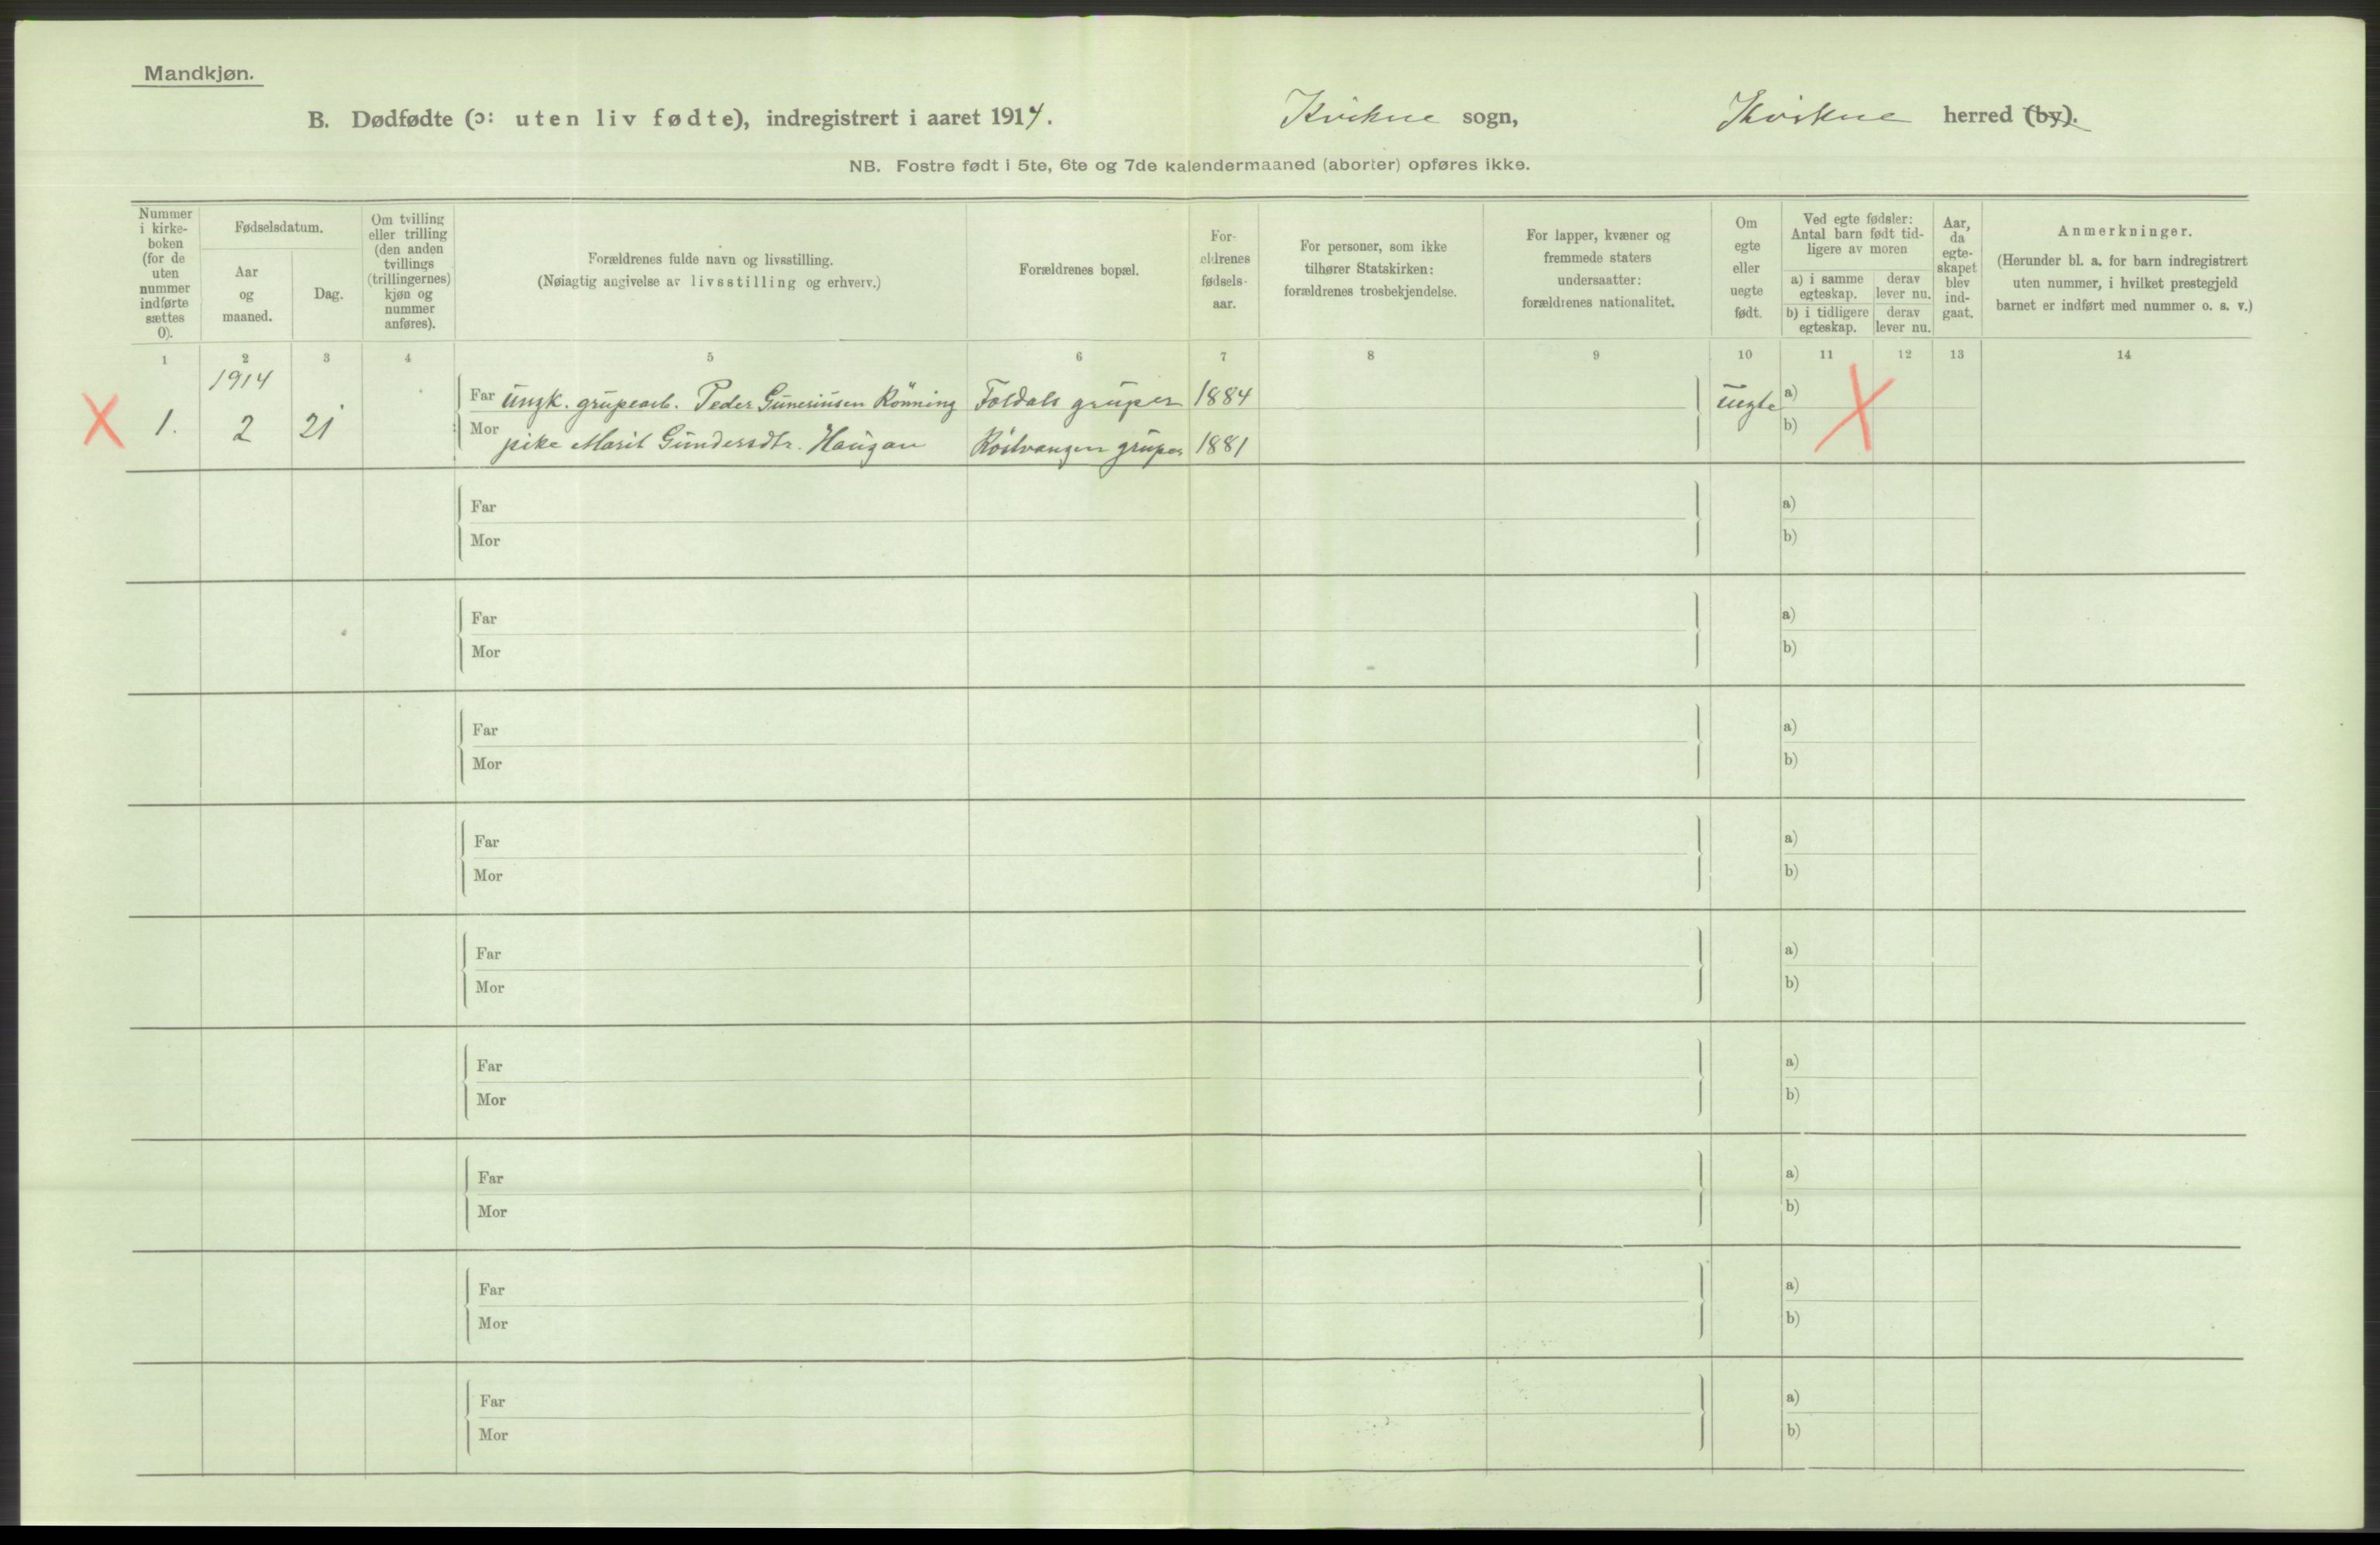 Mandkjøn.
B. Dødfødte (ɔ: uten liv fødte), indregistrert i aaret 1914. Kvikne sogn, Kvikne herred (by).
NB. Fostre født i 5te, 6te og 7de kalendermaaned (aborter) opføres ikke.
Nummer i kirke-boken (for de uten nummer indførte sættes 0).
Fødselsdatum.
Aar og maaned.
Dag.
Om tvilling eller trilling (den anden tvillings (trillingernes) kjøn og nummer anføres).
Forældrenes fulde navn og livsstilling.
(Nøiagtig angivelse av livsstilling og erhverv.)
Forældrenes bopæl.
For-ældrenes fødsels-aar.
For personer, som ikke tilhører Statskirken: forældrenes trosbekjendelse.
For lapper, kvæner og fremmede staters undersaatter: forældrenes nationalitet.
Om egte eller uegte født.
Ved egte fødsler: Antal barn født tid-ligere av moren
a) i samme egteskap.
derav lever nu.
b) i tidligere egteskap.
derav lever nu.
Aar, da egte-skapet blev ind-gaat.
Anmerkninger.
(Herunder bl. a. for barn indregistrert uten nummer, i hvilket prestegjeld barnet er indført med nummer o. s. v.)
1 2 3 4 5 6 7 8 9 10 11 12 13 14
1914
Far ungk. grupearb. Peder Guneriusen Rønning Foldals gruper 1884 uegte a)
1. 2 21
Mor pike Marit Gundersdtr. Haugan Röstvangen gruper 1881 b)
Far a)
Mor b)
Far a)
Mor b)
Far a)
Mor b)
Far a)
Mor b)
Far a)
Mor b)
Far a)
Mor b)
Far a)
Mor b)
Far a)
Mor b)
Far a)
Mor b)